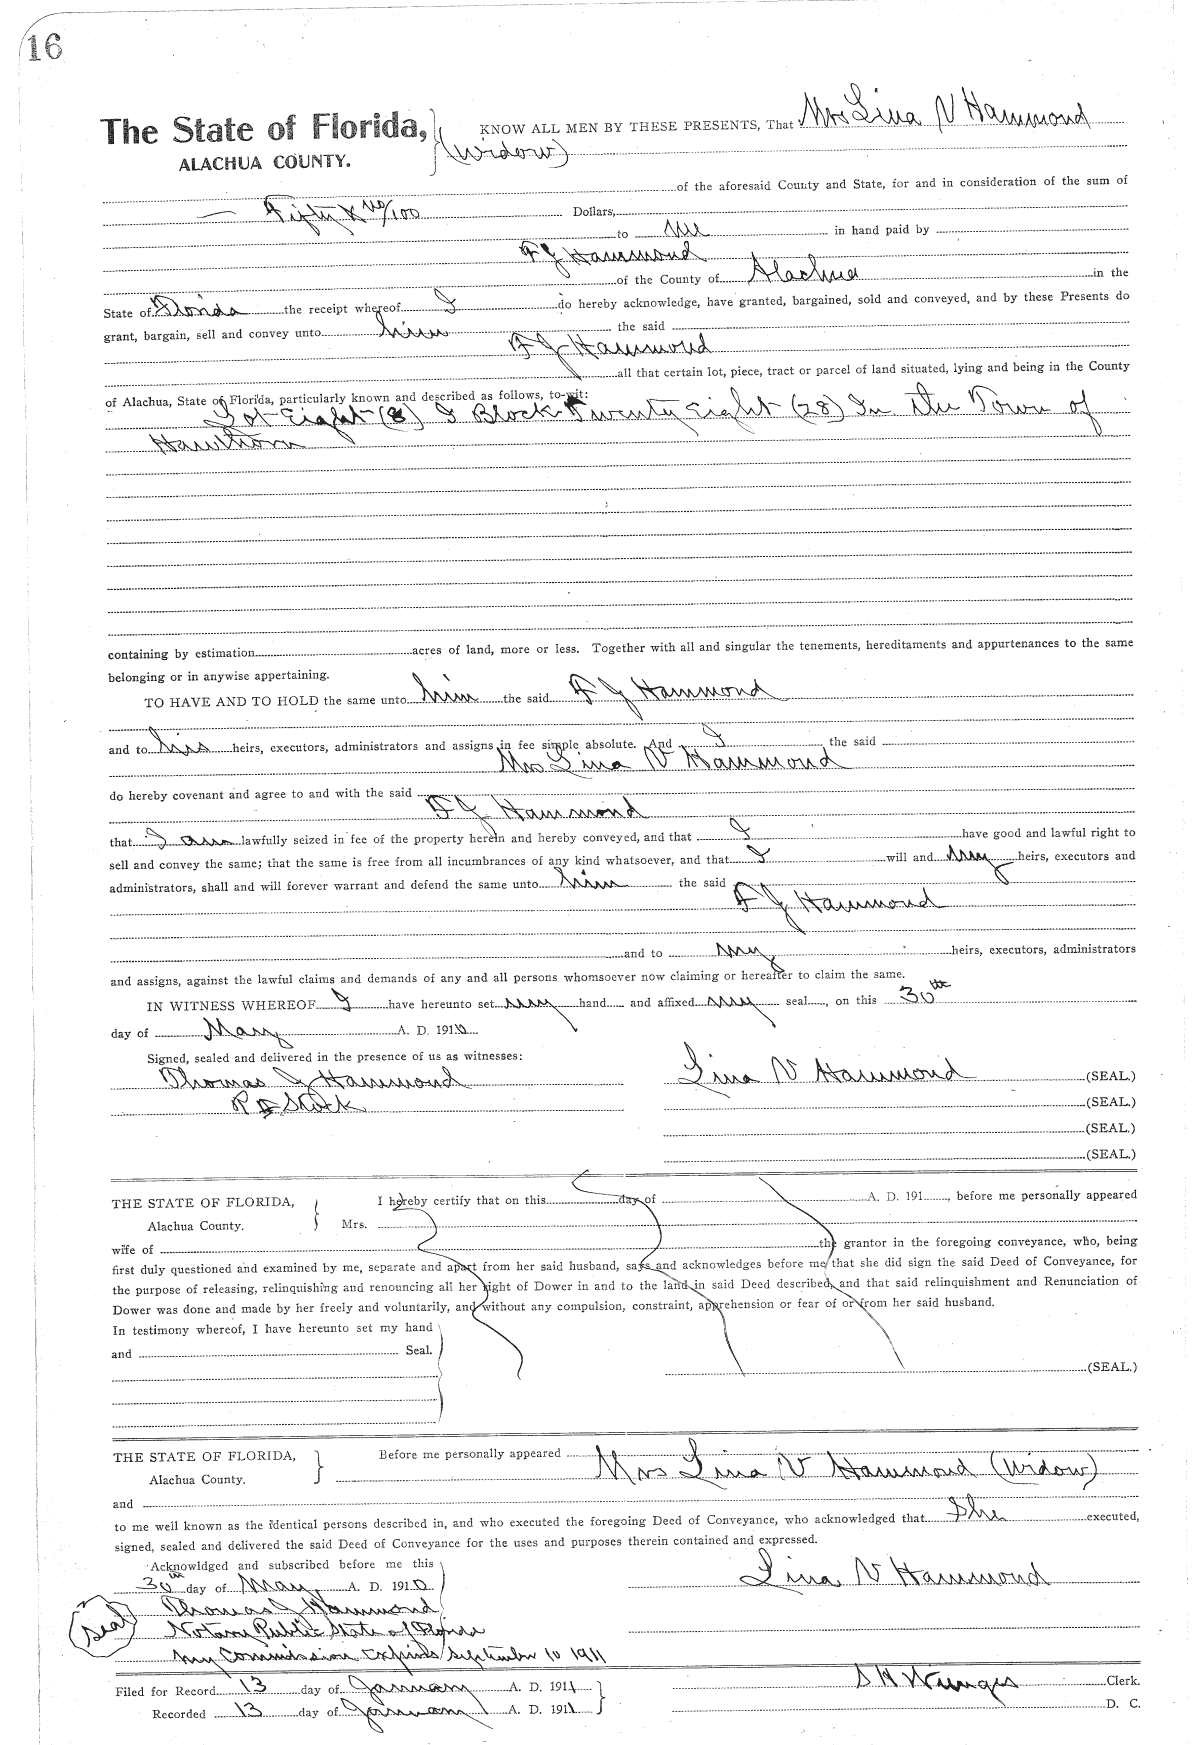 16
The State of Florida, KNOW ALL MEN BY THESE PRESENTS, That Mrs Lina V Hammond
ALACHUA COUNTY. (Widow)
of the aforesaid County and State, for and in consideration of the sum of
— Fifty & No/100 Dollars,
to me in hand paid by
F J Hammond
of the County of Alachua in the
State of Florida the receipt whereof I do hereby acknowledge, have granted, bargained, sold and conveyed, and by these Presents do
grant, bargain, sell and convey unto him the said
F J Hammond
all that certain lot, piece, tract or parcel of land situated, lying and being in the County
of Alachua, State of Florida, particularly known and described as follows, to-wit:
Lot Eight (8) Block Twenty Eight (28) In the Town of
Hawthorn
containing by estimation acres of land, more or less. Together with all and singular the tenements, hereditaments and appurtenances to the same
belonging or in anywise appertaining.
TO HAVE AND TO HOLD the same unto him the said F J Hammond
and to his heirs, executors, administrators and assigns in fee simple absolute. And I the said
Mrs Lina V Hammond
do hereby covenant and agree to and with the said
F J Hammond
that I am lawfully seized in fee of the property herein and hereby conveyed, and that I have good and lawful right to
sell and convey the same; that the same is free from all incumbrances of any kind whatsoever, and that I will and my heirs, executors and
administrators, shall and will forever warrant and defend the same unto him the said
F J Hammond
and to my heirs, executors, administrators
and assigns, against the lawful claims and demands of any and all persons whomsoever now claiming or hereafter to claim the same.
IN WITNESS WHEREOF I have hereunto set my hand and affixed my seal, on this 30th
day of May A. D. 1910
Signed, sealed and delivered in the presence of us as witnesses:
Thomas J Hammond Lina V Hammond (SEAL.)
(SEAL.)
(SEAL.)
(SEAL.)
THE STATE OF FLORIDA, I hereby certify that on this day of A. D. 191, before me personally appeared
Alachua County. Mrs.
wife of the grantor in the foregoing conveyance, who, being
first duly questioned and examined by me, separate and apart from her said husband, says and acknowledges before me that she did sign the said Deed of Conveyance, for
the purpose of releasing, relinquishing and renouncing all her right of Dower in and to the land in said Deed described, and that said relinquishment and Renunciation of
Dower was done and made by her freely and voluntarily, and without any compulsion, constraint, apprehension or fear of or from her said husband.
In testimony whereof, I have hereunto set my hand
and Seal.
(SEAL.)
THE STATE OF FLORIDA, Before me personally appeared
Alachua County. Mrs Lina V Hammond (Widow)
and
to me well known as the identical persons described in, and who executed the foregoing Deed of Conveyance, who acknowledged that She executed,
signed, sealed and delivered the said Deed of Conveyance for the uses and purposes therein contained and expressed.
Acknowldged and subscribed before me this
30th day of May, A. D. 1910 Lina V Hammond
Thomas J Hammond
(Seal) Notary Public State of Florida
my Commission expires September 10 1911
Filed for Record 13 day of January A. D. 1911 S H Wienges Clerk.
Recorded 13 day of January A. D. 1911 D. C.